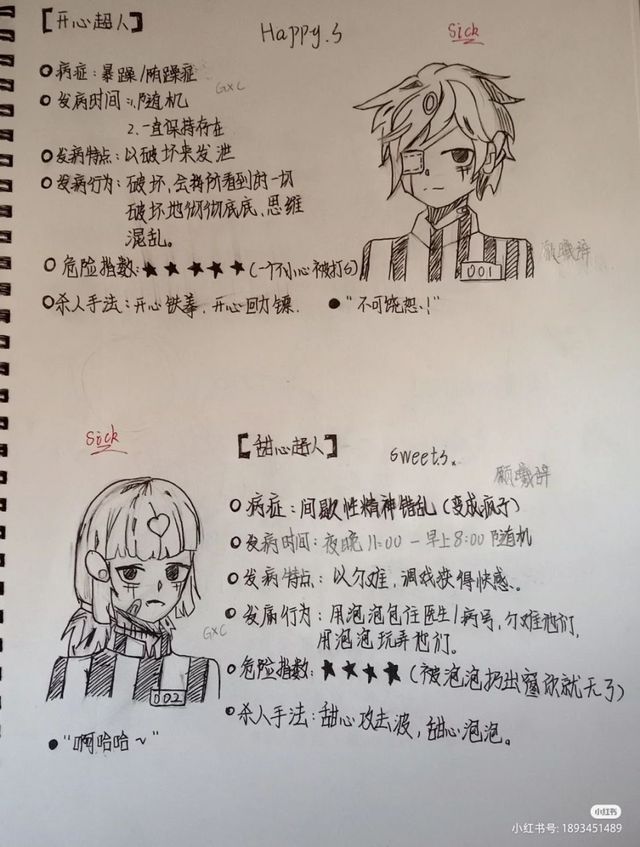 【开心超人】
Happy.S
Sick
病症：暴躁/
GXC
发病时间：1.随机
2.一直保持存在
发病特点：以破坏来发泄
发病行为：破坏，会将所看到的一切
破坏地彻彻底底，思维
混乱。
危险指数：★★★★★（一个不小心被打
001
顾曦辞
杀人手法：开心铁拳，开心回力镖．
“不可饶恕！”
Sick
【甜心超人】
Sweets.
顾曦辞
病症：间歇性精神错乱（变成疯子）
发病时间：夜晚11:00－早上8:00随机
发病特点：以尔难，调戏获得快感。
发病行为：用泡泡包住医生/病号，尔难他们，
用泡泡玩弄他们。
GXC
危险指数：★★★★（被泡泡扔出窗你就无了）
002
杀人手法：甜心攻击波，甜心泡泡。
“啊哈哈～”
小红书
小红书号: 1893451489